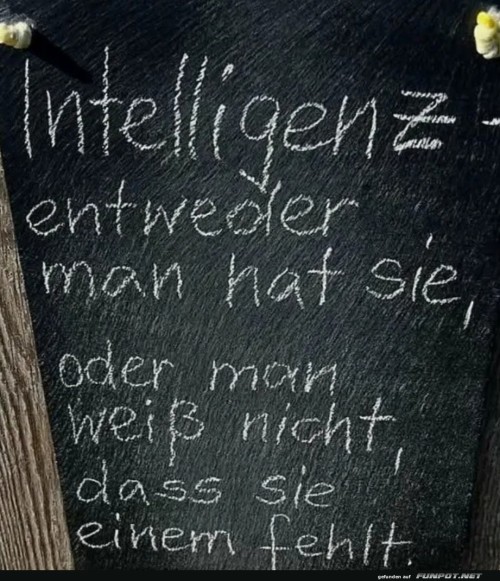 Intelligenz -
entweder
man hat sie,
oder man
weiß nicht,
dass sie
einem fehlt.
gefunden auf FUNPOT.NET